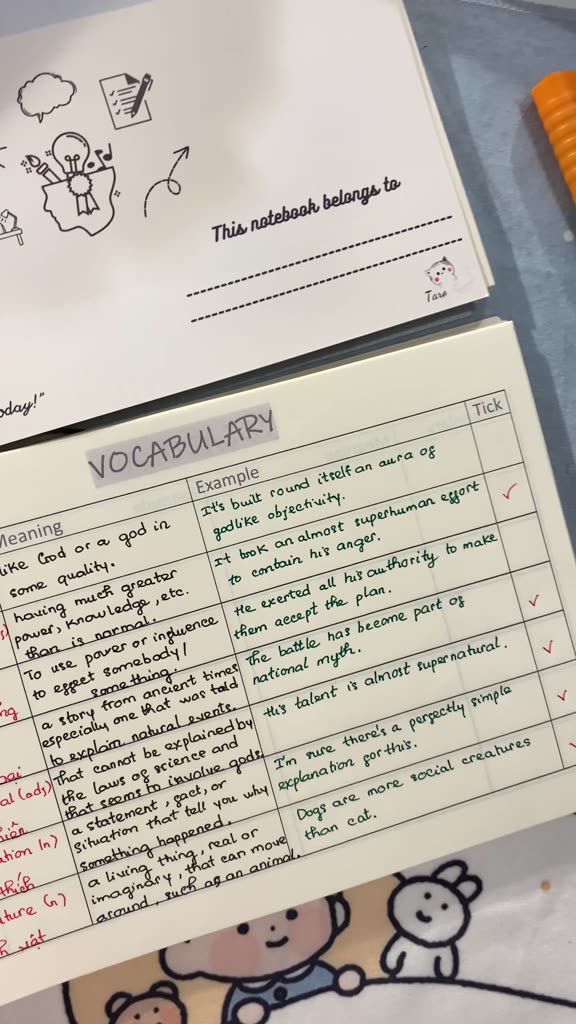 This notebook belongs to
Taro
oday!"
VOCABULARY
Meaning
Example
Tick
like God or a god in
some quality.
It's built round itself an aura of
godlike objectivity.
having much greater
power, knowledge, etc.
than is normal.
It took an almost superhuman effort
to contain his anger.
✓
To use power or influence
to effect somebody/
something.
He exerted all his authority to make
them accept the plan.
a story from ancient times
especially one that was told
to explain natural events.
The battle has become part of
national myth.
✓
al (adj)
that cannot be explained by
the laws of science and
that seems to involve gods
His talent is almost supernatural.
✓
ation (n)
a statement, fact, or
situation that tell you why
something happened.
I'm sure there's a perfectly simple
explanation for this.
✓
thích
ture (n)
vật
a living thing, real or
imaginary, that can move
around, such as an animal.
Dogs are more social creatures
than cat.